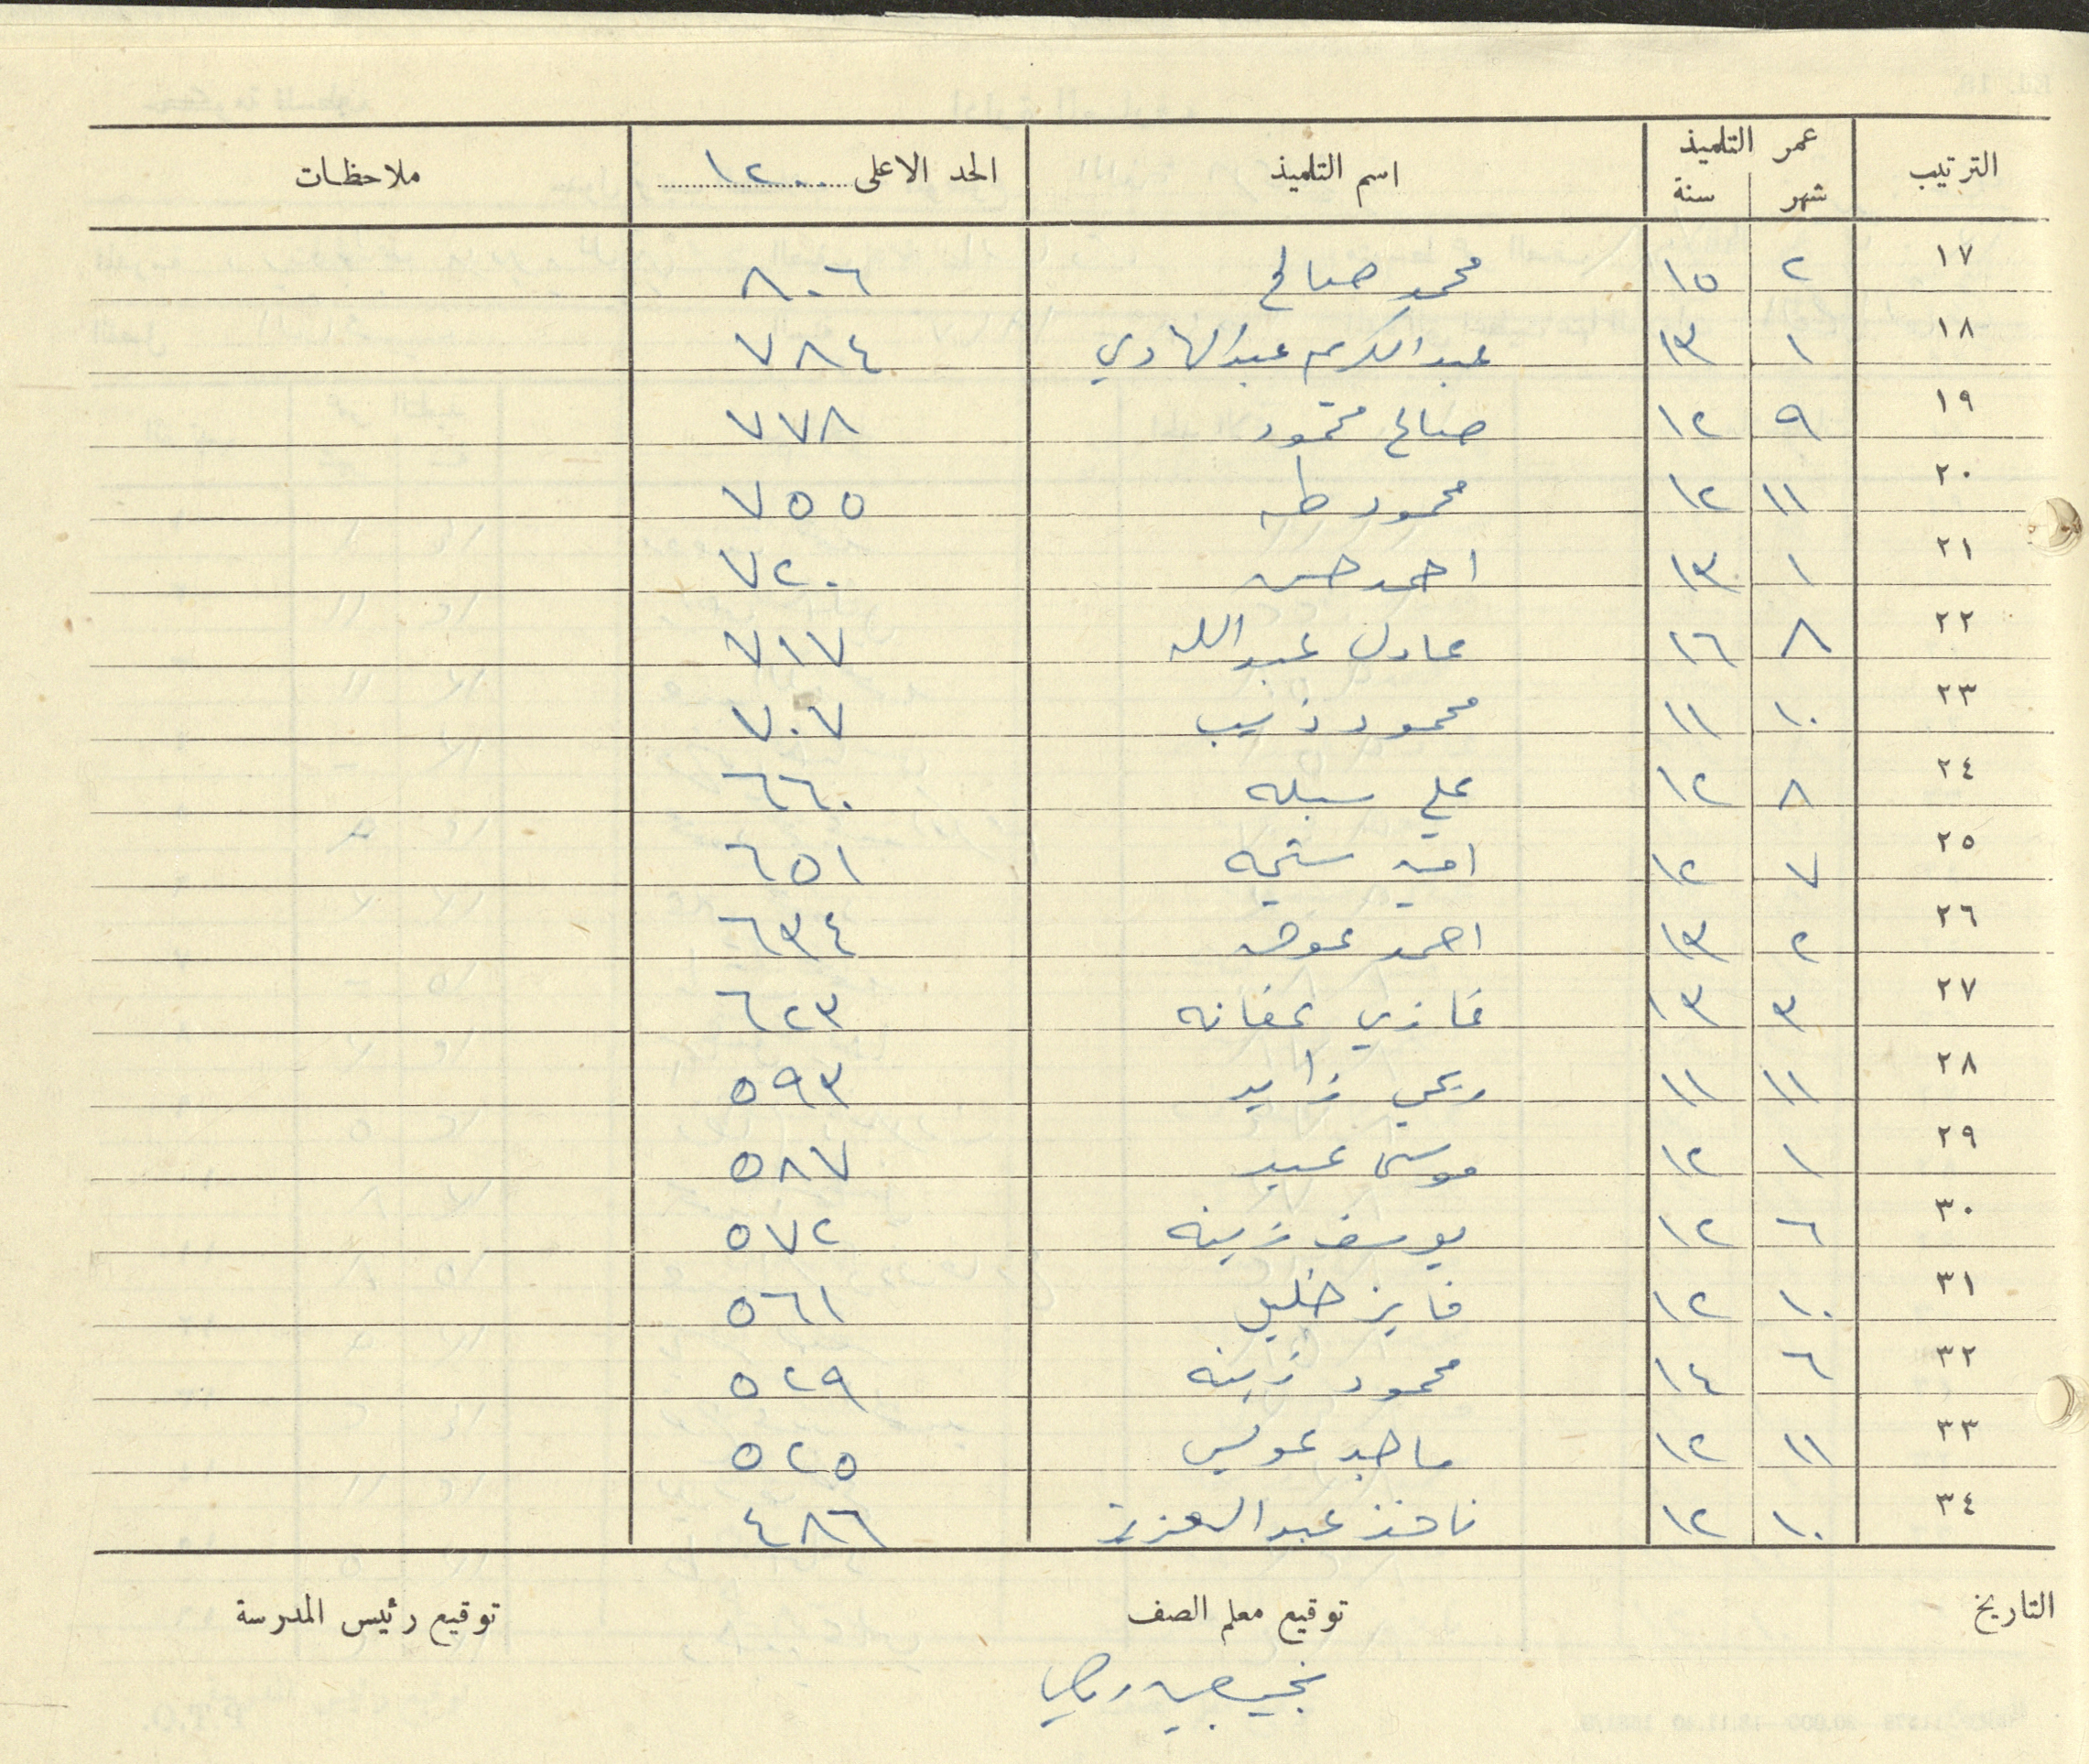 الترتيب عمر التلميذ اسم التلميذ الحد الاعلى ١٢٠٠ ملاحظات
شهر سنة
١٧ ٢ ١٥ محمد صالح ٨٠٦
١٨ ١ ١٣ عبد الكريم عبد الهادي ٧٨٤
١٩ ٩ ١٢ صالح محمود ٧٧٨
٢٠ ١١ ١٢ محمود طه ٧٥٥
٢١ ١ ١٣ احمد حسن ٧٢٠
٢٢ ٨ ١٦ عادل عبد الله ٧١٧
٢٣ ١٠ ١١ محمود ذيب ٧٠٧
٢٤ ٨ ١٢ علي ٦٦٠
٢٥ ٧ ١٢ ٦٥١
٢٦ ٢ ١٣ احمد عوض ٦٣٤
٢٧ ٣ ١٣ غازي عفانه ٦٢٣
٢٨ ١١ ١١ ربحي زايد ٥٩٣
٢٩ ١ ١٢ موسى عبيد ٥٨٧
٣٠ ٦ ١٢ يوسف زينه ٥٧٢
٣١ ١٠ ١٢ فايز خليل ٥٦١
٣٢ ٦ ١٤ محمود زينه ٥٢٩
٣٣ ١١ ١٢ ماجد عويس ٥٢٥
٣٤ ١٠ ١٢ نافذ عبد العزيز ٤٨٦
التاريخ توقيع معلم الصف توقيع رئيس المدرسة